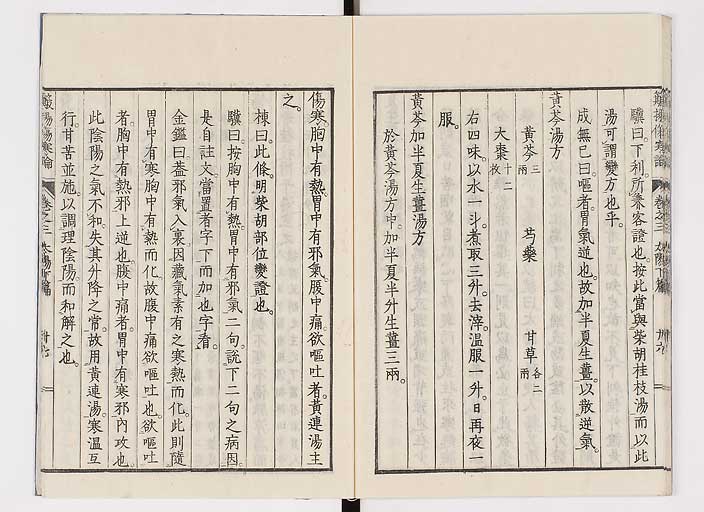 驥曰下利所兼客證也按此當與柴胡桂枝湯而以此
湯可謂變方也乎
成無已曰嘔者胃氣逆也故加半夏生薑以散逆氣
黃芩湯方
黃芩三兩　芍藥　甘草各二兩
大棗十二枚
右四味以水一斗煮取三升去滓溫服一升日再夜一
服
黃芩加半夏生薑湯方
於黃芩湯方中加半夏半升生薑三兩
傷寒胸中有熱胃中有邪氣腹中痛欲嘔吐者黃連湯主
之
棟曰此條明柴胡部位變證也
驥曰按胸中有熱胃中有邪氣二句說下二句之病因
是自註文當置者字下而加也字看
金鑑曰盖邪氣入裏因藏氣素有之寒熱而化此則隨
胃中有寒胸中有熱而化故腹中痛欲嘔吐也欲嘔吐
者胸中有熱邪上逆也腹中痛者胃中有寒邪內攻也
此陰陽之氣不和失其升降之常故用黃連湯寒溫互
行甘苦並施以調理陰陽而和解之也
傷寒論　卷之三　太陽下篇